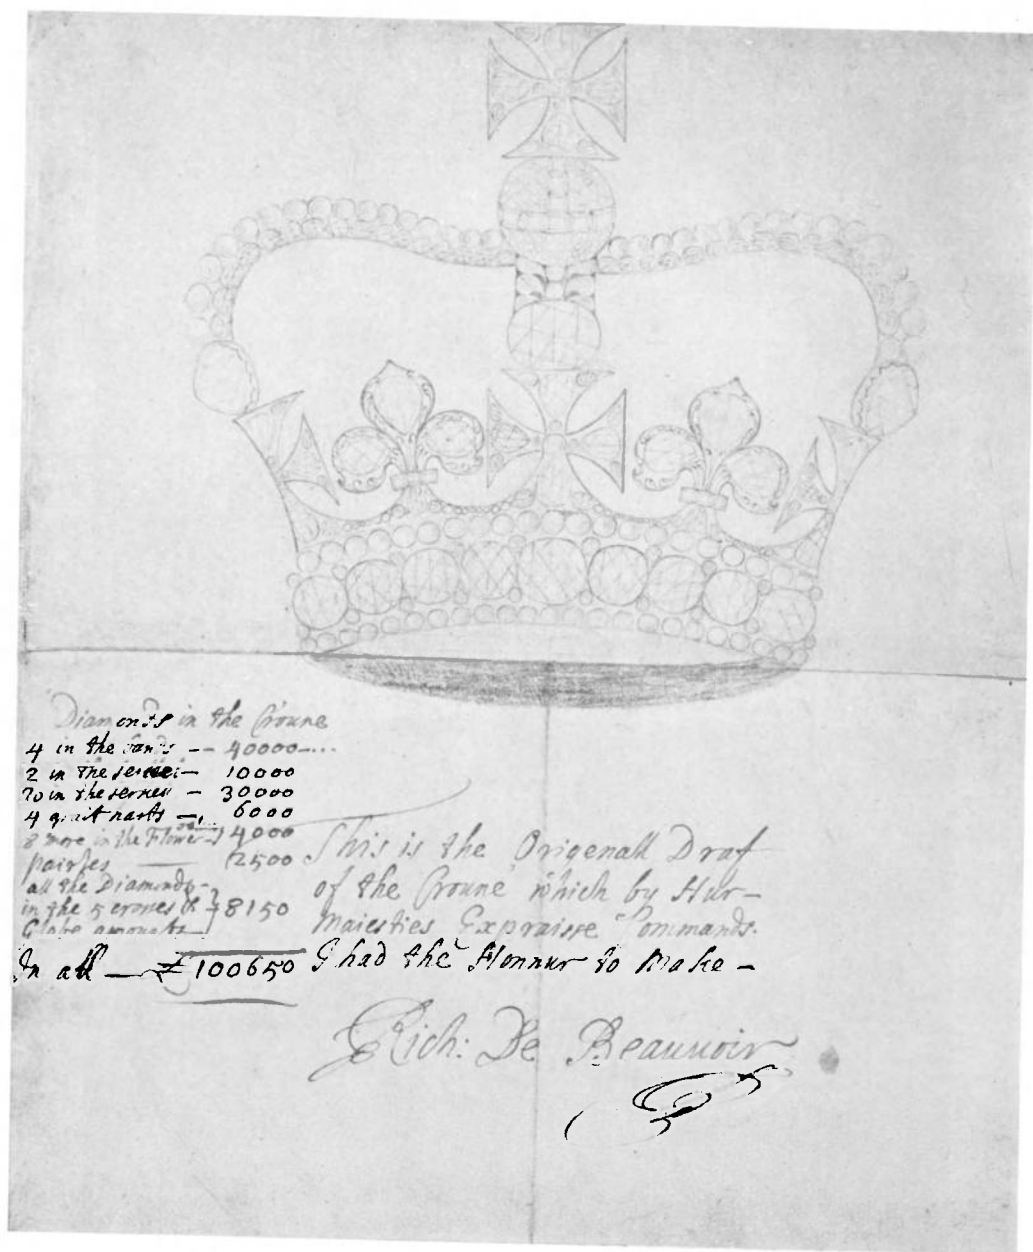 Diamonds in the Croune
4 in the bands -- 40000-...
2 in the — 10000
20 in the — 30000
4 harts — 6000
8 more in the Flower 4000
— 2500
all the Diamonds
in the 5 croses & } 8150
Globe amounts
In all — £ 100650
This is the Origenall Draf
of the Croune which by Har-
Maiesties Expraisse Commands.
I had the Honnur to Make -
Rich: De Beauuoir